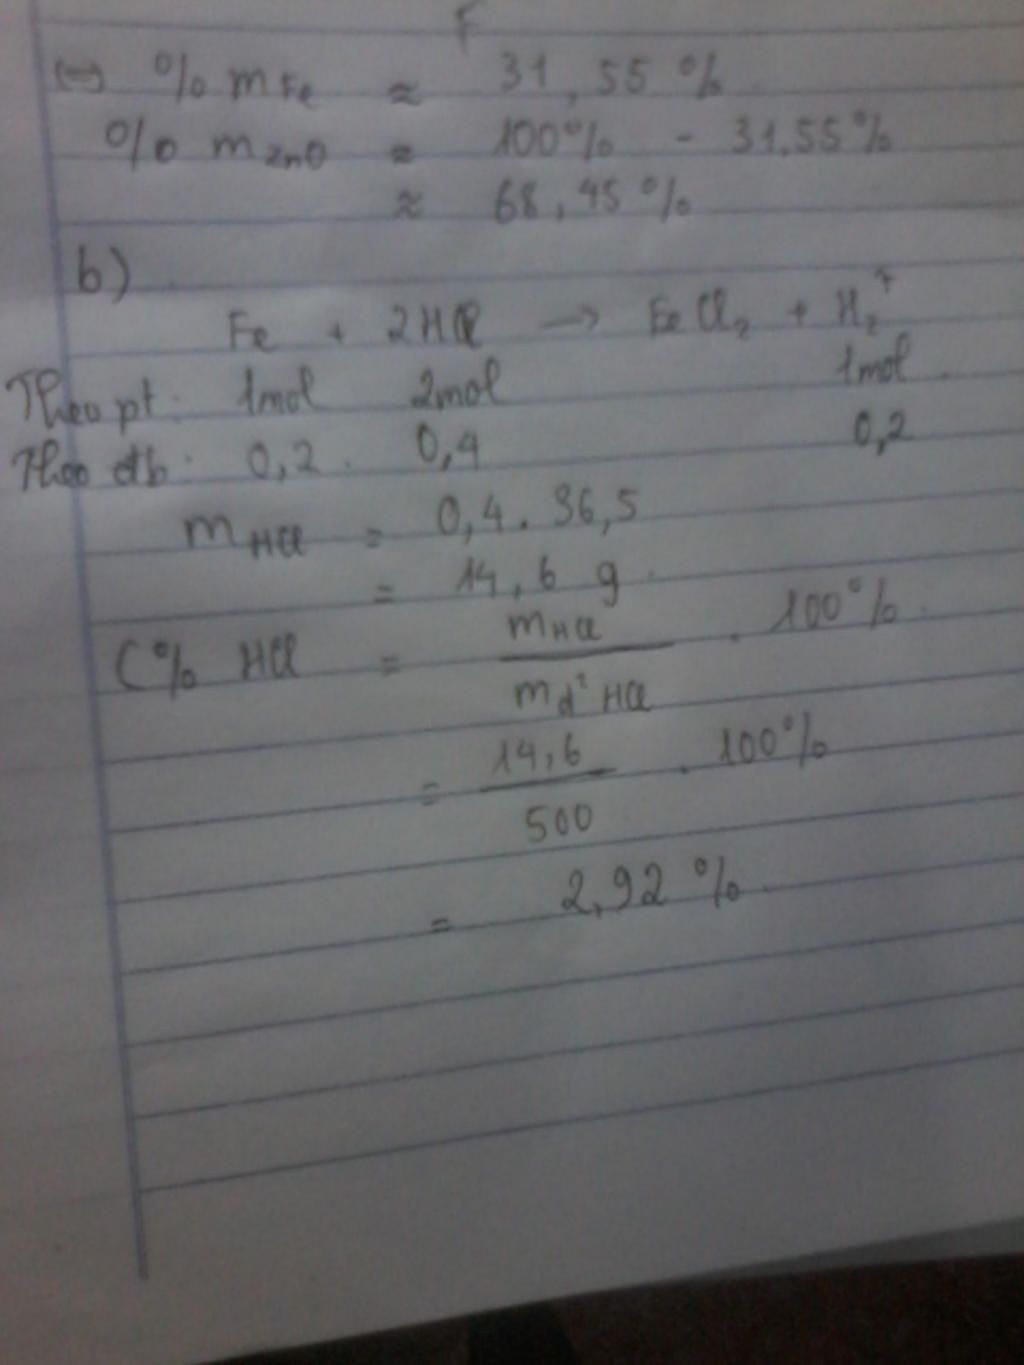 F
⇔ % mFe ≈ 31,55 %
% mZnO = 100% - 31,55%
≈ 68,45%
b)
Fe + 2HCl → FeCl₂ + H₂↑
Theo pt: 1mol 2mol 1mol
Theo đb: 0,2 0,4 0,2
mHCl = 0,4 . 36,5
= 14,6 g
C% HCl = mHCl / md² HCl . 100%
= 14,6 / 500 . 100%
= 2,92 %